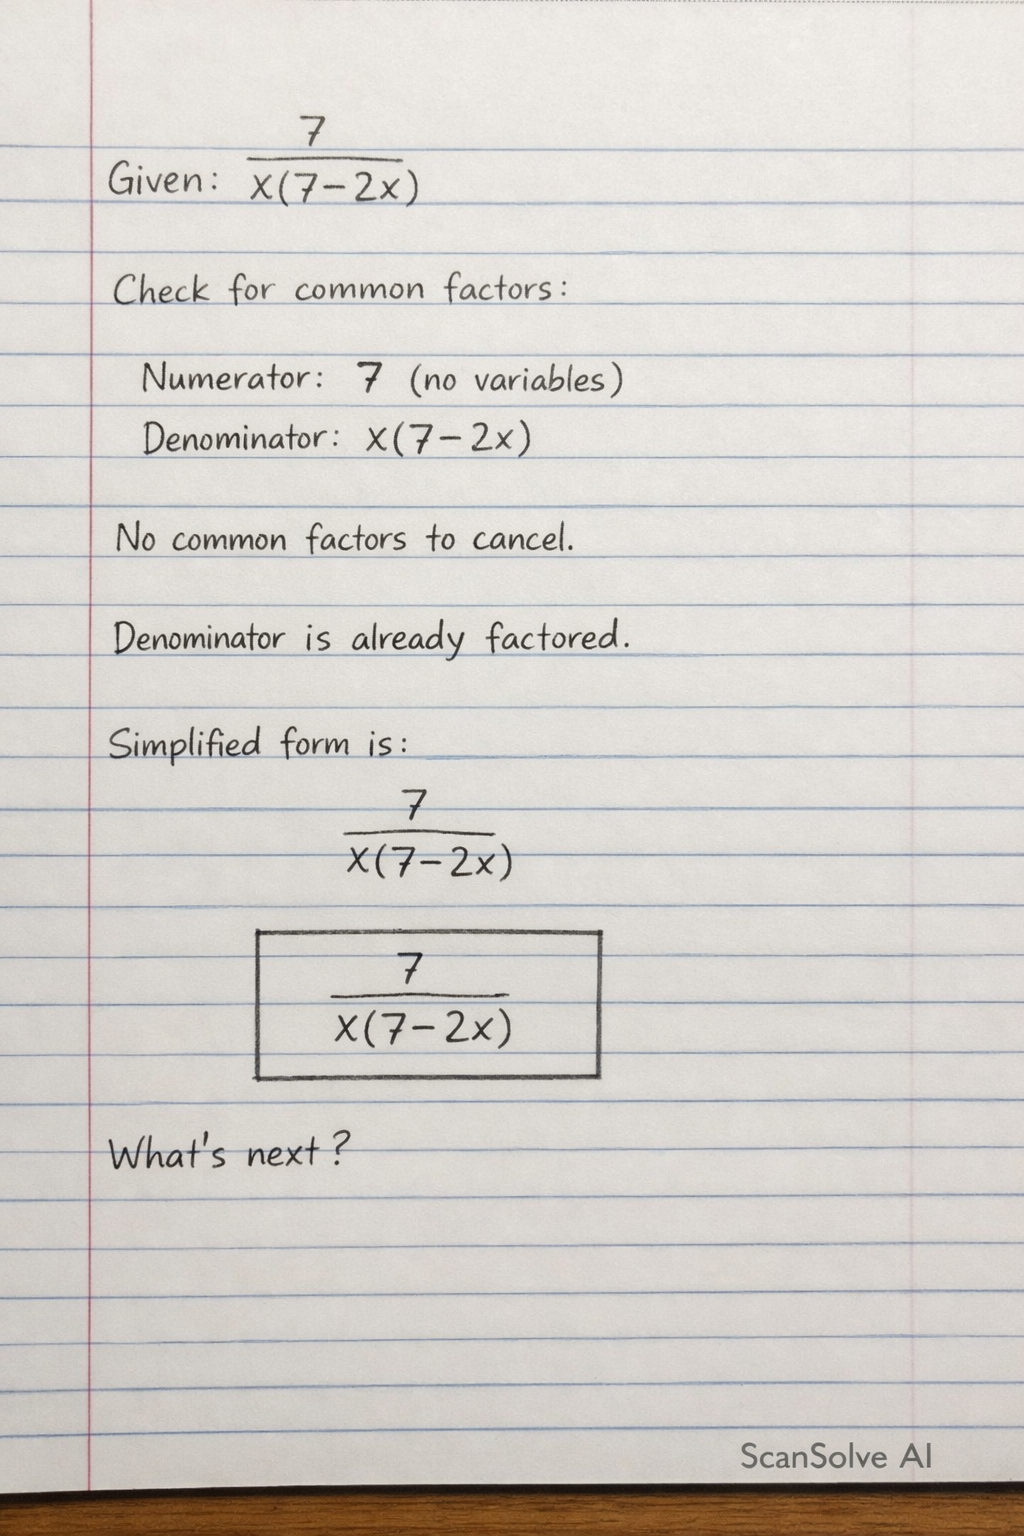 7
Given: x(7-2x)
Check for common factors:
Numerator: 7 (no variables)
Denominator: x(7-2x)
No common factors to cancel.
Denominator is already factored.
Simplified form is:
7
x(7-2x)
7
x(7-2x)
What's next?
ScanSolve AI